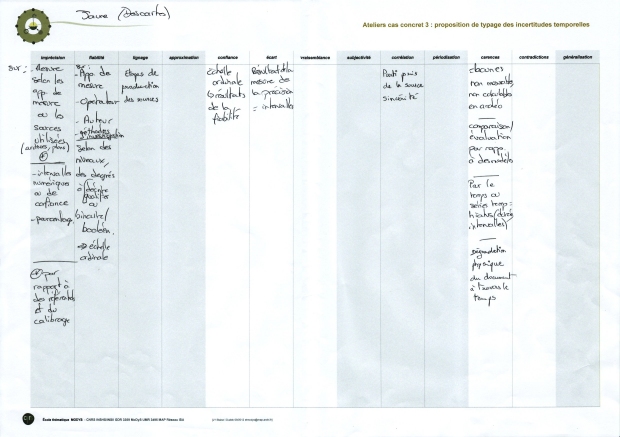 Jaune (Descartes)
Ateliers cas concret 3 : proposition de typage des incertitudes temporelles
imprécision
fiabilité
lignage
approximation
confiance
écart
vraisemblance
subjectivité
corrélation
périodisation
carences
contradictions
généralisation
sur :
- Mesure
selon les
app. de
mesure
ou les
sources
utilisées
- intervalles
numériques
ou de
confiance
- pourcentage
+ par
rapport à
des référentiels
et du
calibrage
- App. de
mesure
- Opérateur
- Auteur
- méthodes
d'investigation
selon des
niveaux,
des degrés
à définir
qualifier
ou
binaire/
booléen.
=> échelle
ordinale
Etapes de
production
des sources
échelle
ordinale
résultats
de la
fiabilité
Résultat de la
mesure de
la précision
= intervalles
Parti pris
de la source
Sincérité
lacunes
non mesurables,
non calculables
en archéo
comparaison/
évaluation
par rapp.
à des modèles
Par le
temps ou
séries temp.
intervalles)
dégradation
physique
du document
à travers le
temps
École thématique MODYS